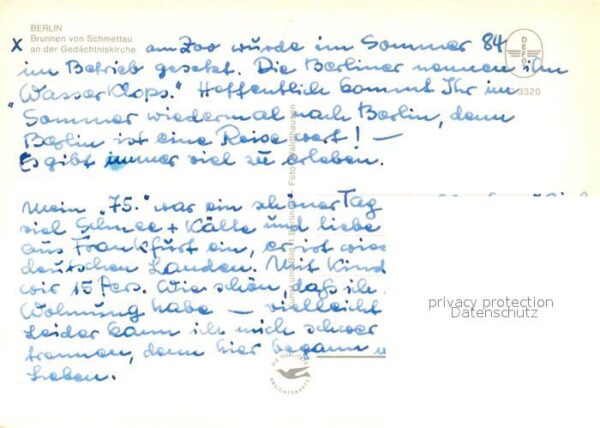 BERLIN
Brunnen von Schmettau
an der Gedächtniskirche
x am Zoo wurde im Sommer 84
im Betrieb gesetzt. Die Berliner nennen ihn
"Wasser Klops." Hoffentlich kommt Ihr im
Sommer wiedermal nach Berlin, denn
Berlin ist eine Reise wert! —
Es gibt immer viel zu erleben.
Mein "75." war ein schöner Tag
viel Schnee + Kälte und liebe
aus Frankfurt ein, er ist wie
deutschen Landen. Mit Kind
wir 15 Pers. Wie schön, daß ich
Wohnung habe — vielleicht
Leider kann ich mich schwer
trennen, denn hier begann
Leben.
DEFO
3320
privacy protection
Datenschutz